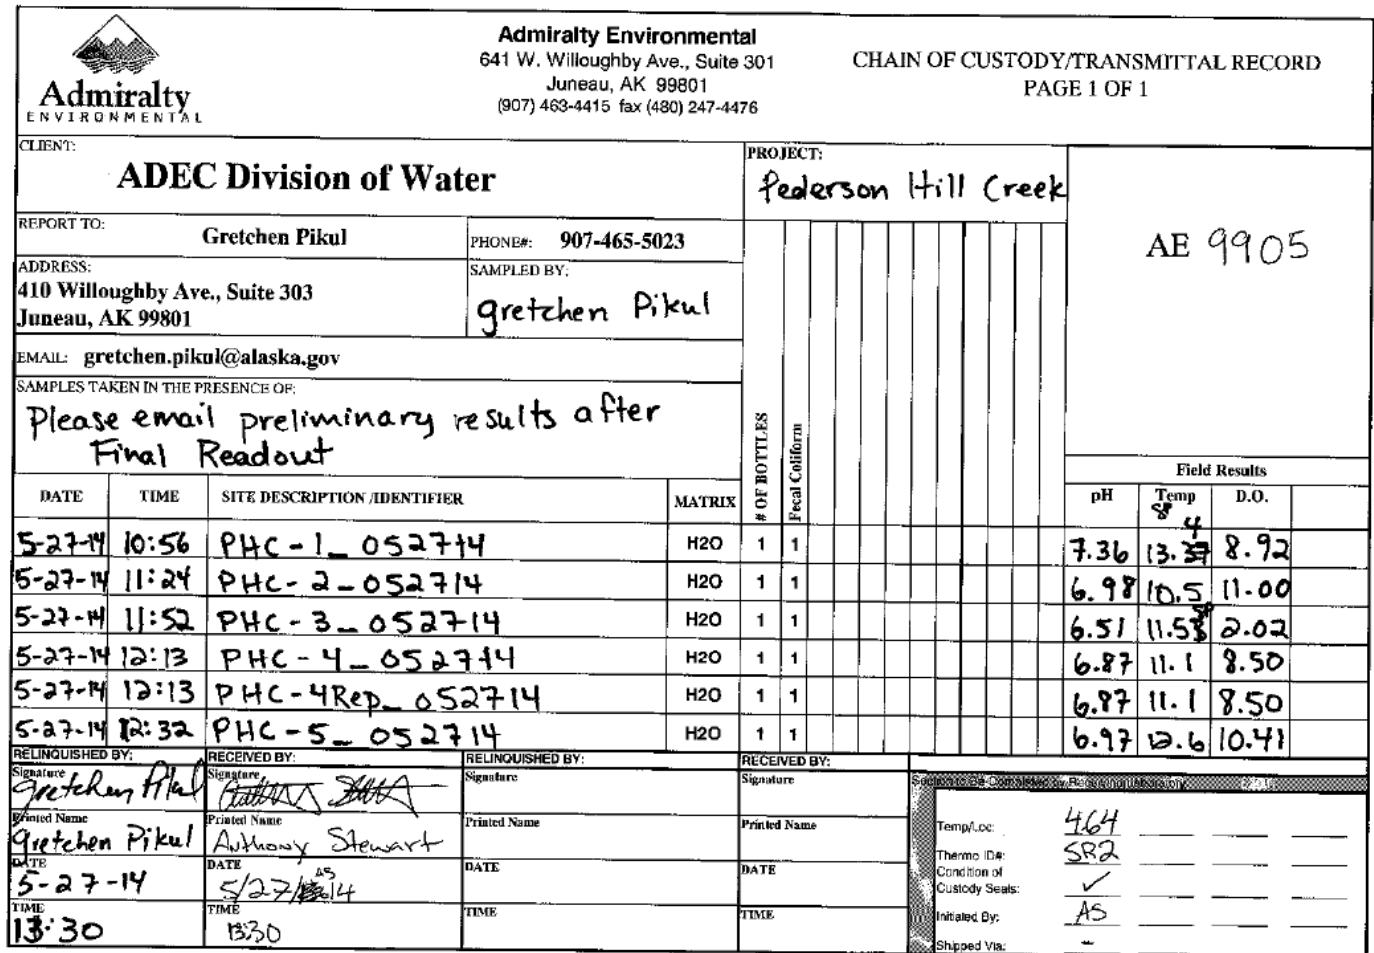 Admiralty
ENVIRONMENTAL
Admiralty Environmental
641 W. Willoughby Ave., Suite 301
Juneau, AK 99801
(907) 463-4415 fax (480) 247-4476
CHAIN OF CUSTODY/TRANSMITTAL RECORD
PAGE 1 OF 1
CLIENT:
ADEC Division of Water
PROJECT:
Pederson Hill Creek
AE 9905
REPORT TO:
Gretchen Pikul
PHONE#: 907-465-5023
ADDRESS:
410 Willoughby Ave., Suite 303
Juneau, AK 99801
SAMPLED BY:
gretchen Pikul
EMAIL: gretchen.pikul@alaska.gov
SAMPLES TAKEN IN THE PRESENCE OF:
Please email preliminary results after
Final Readout
Field Results
DATE TIME SITE DESCRIPTION /IDENTIFIER MATRIX # OF BOTTLES Fecal Coliform pH Temp D.O.
5-27-14 10:56 PHC-1_052714 H2O 1 1 7.36 13.4 8.92
5-27-14 11:24 PHC-2_052714 H2O 1 1 6.98 10.5 11.00
5-27-14 11:52 PHC-3_052714 H2O 1 1 6.51 11.5 2.02
5-27-14 12:13 PHC-4_052714 H2O 1 1 6.87 11.1 8.50
5-27-14 12:13 PHC-4Rep_052714 H2O 1 1 6.87 11.1 8.50
5-27-14 12:32 PHC-5_052714 H2O 1 1 6.97 12.6 10.41
RELINQUISHED BY: RECEIVED BY: RELINQUISHED BY: RECEIVED BY:
Signature Signature Signature Signature
Gretchen Pikul
Printed Name Printed Name Printed Name Printed Name
Gretchen Pikul Anthony Stewart
DATE DATE DATE DATE
5-27-14 5/27/14 AS
TIME TIME TIME TIME
13:30 13:30
Section to Be Completed by Receiving Laboratory
Temp/Loc: 4.64
Thermo ID#: SR2
Condition of
Custody Seals: ✓
Initialed By: AS
Shipped Via: -